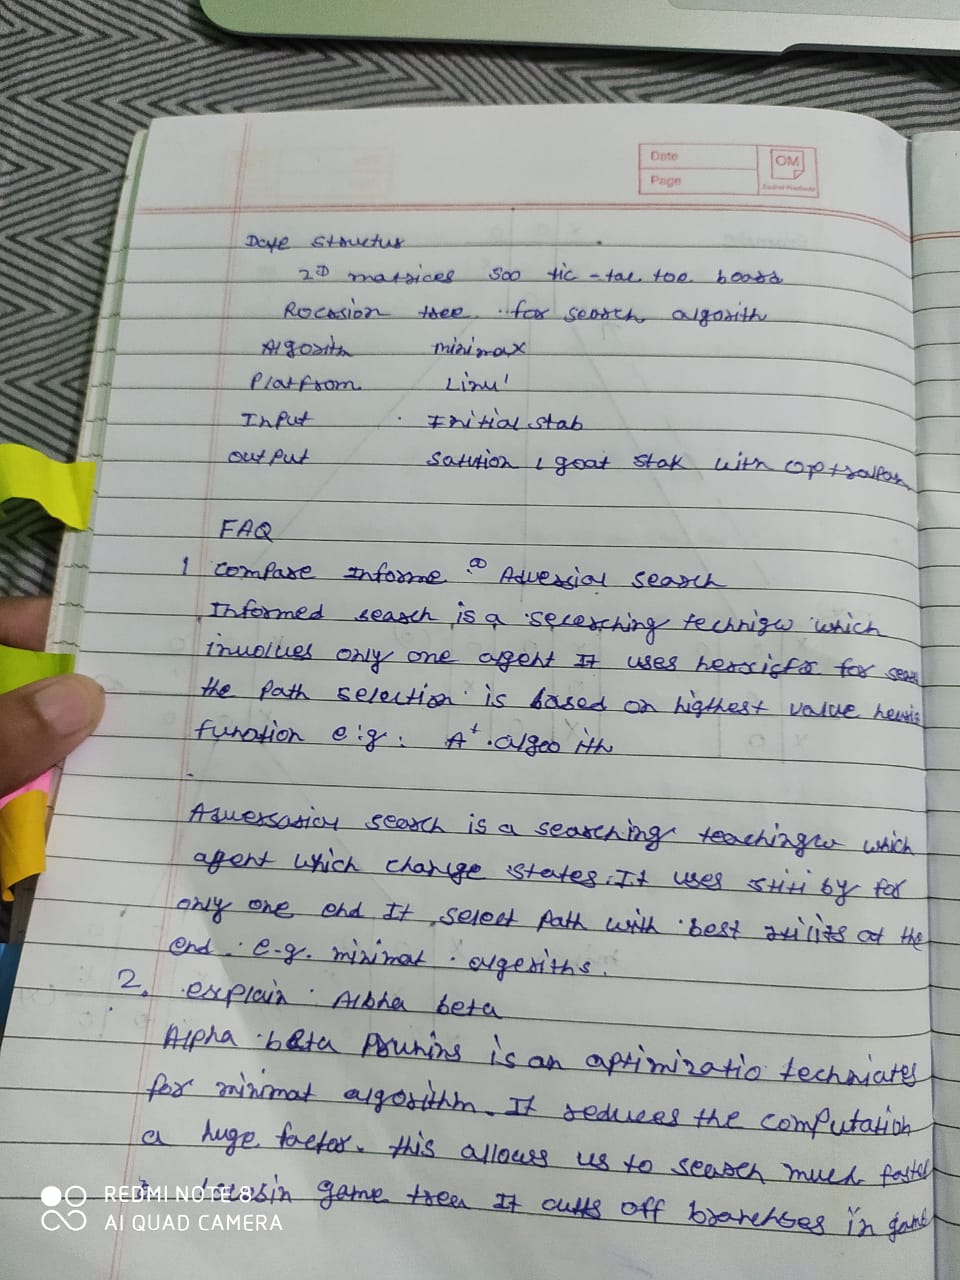 Date
Page
OM
Date Structus
2D matrices soo tic-tae toe board
Rocasion tree. for search algorith
Algorith minimax
Platfrom Linu'
Input Initial stab
output satution 1 goat stak with
FAQ
1 compare Informe Adversial search
Informed search is a secerching technigw which
involues only one agent It uses for
the path selection is based on highest value
function e.g. A+ algoo ith
Aduersarial search is a searching teachingw which
agent which change states. It uses by for
only one end It select path with best at the
end. e.g. minimat algeriths.
2. explain Albha beta
Alpha beta Pruning is an aptimizatio techniates
for minimat algorithm. It reduces the computation
a huge factor. this allouss us to search much faster
game tree It cutts off branehses in game
REDMI NOTE 8
AI QUAD CAMERA